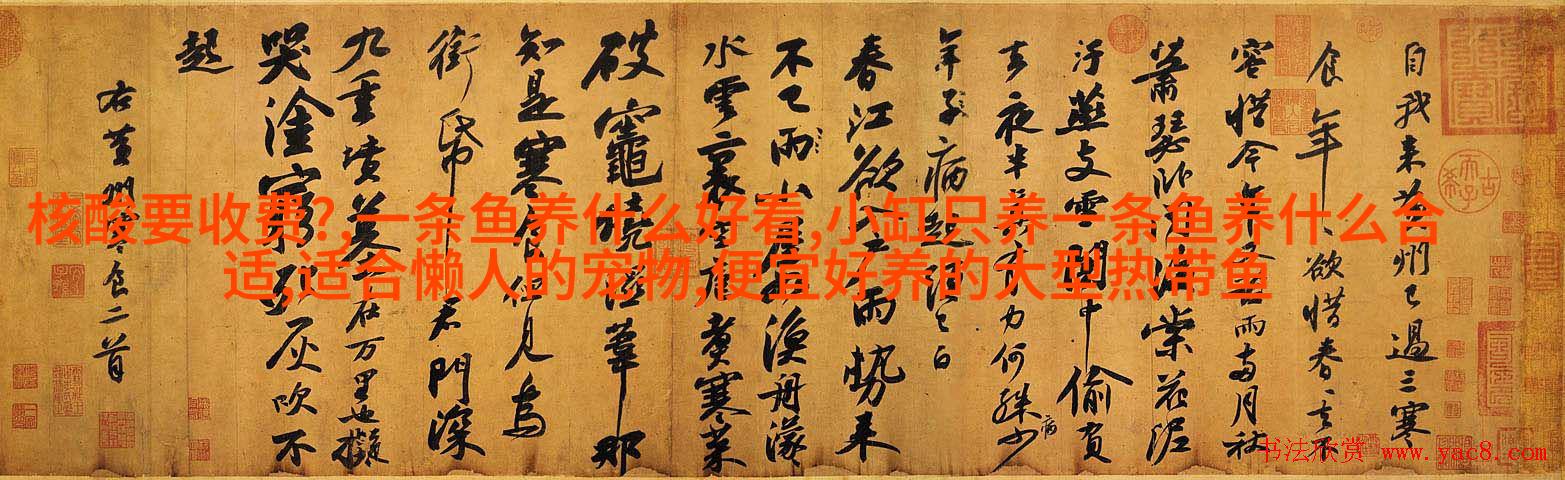 核酸要收费?,一条鱼养什么好看,小缸只养一条鱼养什么合
适,适合懒人的宠物,便宜好养的大型热带鱼
自我来黄州已過三寒
食年、欲惜春、去不
容惜今年又苦雨兩月秋
蕭瑟卧聞海棠花泥
汙燕支雪闇中偷負
去夜半真有力何殊少
病
年子病起頭已白
春江欲入戶雨勢来
不已雨小屋如漁舟濛
水雲裏空庖煮寒菜
破竈燒濕葦那
知是寒食但見烏
銜帋君門深
九重墳墓在万里也擬
哭塗窮死灰吹不
起
右黄州寒食二首
书法欣赏 www.yac8.com